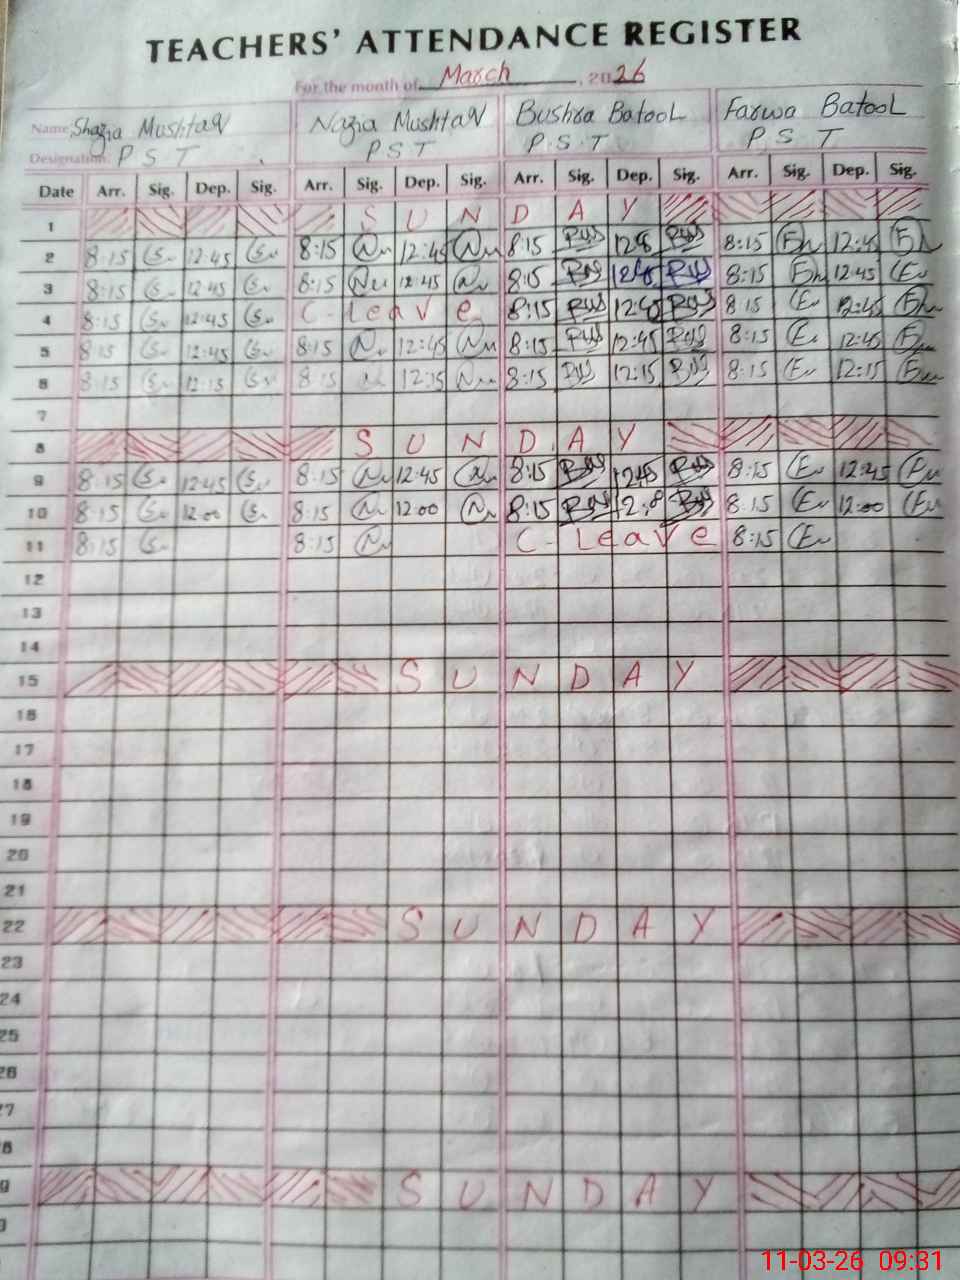 TEACHERS' ATTENDANCE REGISTER
For the month of March, 2026
Name Shazia Mushtaq Nazia Mushtaq Bushra Batool Farwa Batool
Designation: P S T P S T P.S.T P S T
Date Arr. Sig. Dep. Sig. Arr. Sig. Dep. Sig. Arr. Sig. Dep. Sig. Arr. Sig. Dep. Sig.
1 S U N D A Y
2 8:15 12:45 8:15 12:45 8:15 8:15 12:45
3 8:15 12:45 8:15 12:45 8:15 8:15 12:45
4 8:15 12:45 C-leave 8:15 8:15 12:45
5 8:15 12:45 8:15 12:45 8:15 12:45 8:15 12:45
6 8:15 12:15 8:15 12:15 8:15 12:15 8:15 12:15
7
8 S U N D A Y
9 8:15 12:45 8:15 12:45 8:15 12:45 8:15 12:45
10 8:15 12:00 8:15 12:00 8:15 8:15 12:00
11 8:15 8:15 C-Leave 8:15
12
13
14
15 S U N D A Y
16
17
18
19
20
21
22 S U N D A Y
23
24
25
26
27
8
9 S U N D A Y
11-03-26 09:31